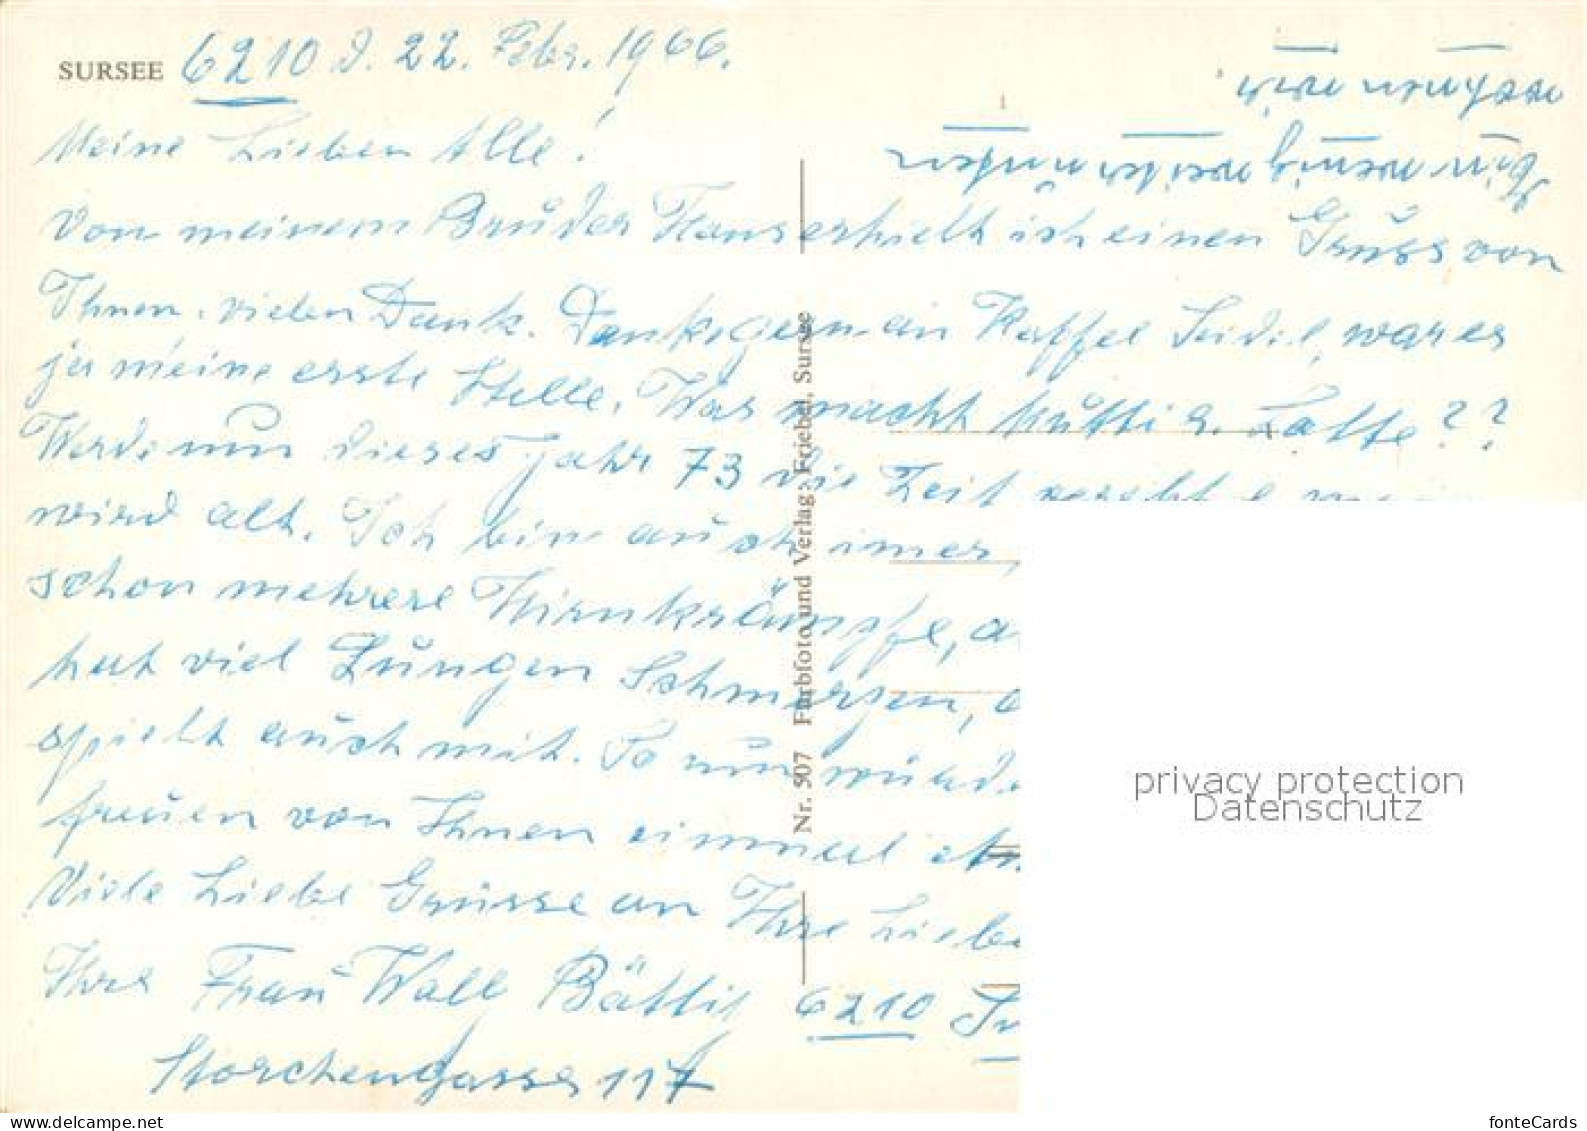 SURSEE 6210 d. 22. Febr. 1966.
Meine Lieben Alle!
Von meinem Bruder Hans erhielt ich einen Gruss von
Ihnen. vielen Dank. Denk gern an Kaffee Seidel, war es
ja meine erste Stelle. Was macht
Werde nun dieses Jahr 73 die Zeit vergeht
wird alt. Ich bin auch imer,
schon mehrere Hirnkrämpfe, a
hat viel Lungen Schmerzen, d
spielt auch mit. So nun würde
freuen von Ihnen einmal
Viele Liebe Grüsse an Ihre Liebe
Ihre Frau Wall Bättig 6210 Su
Storchengasse 117
Bin wenig weiter unten
wohnen wir.
Nr. 507 Farbfoto und Verlag: Friebel, Sursee
privacy protection
Datenschutz
the best is here
fonteCards